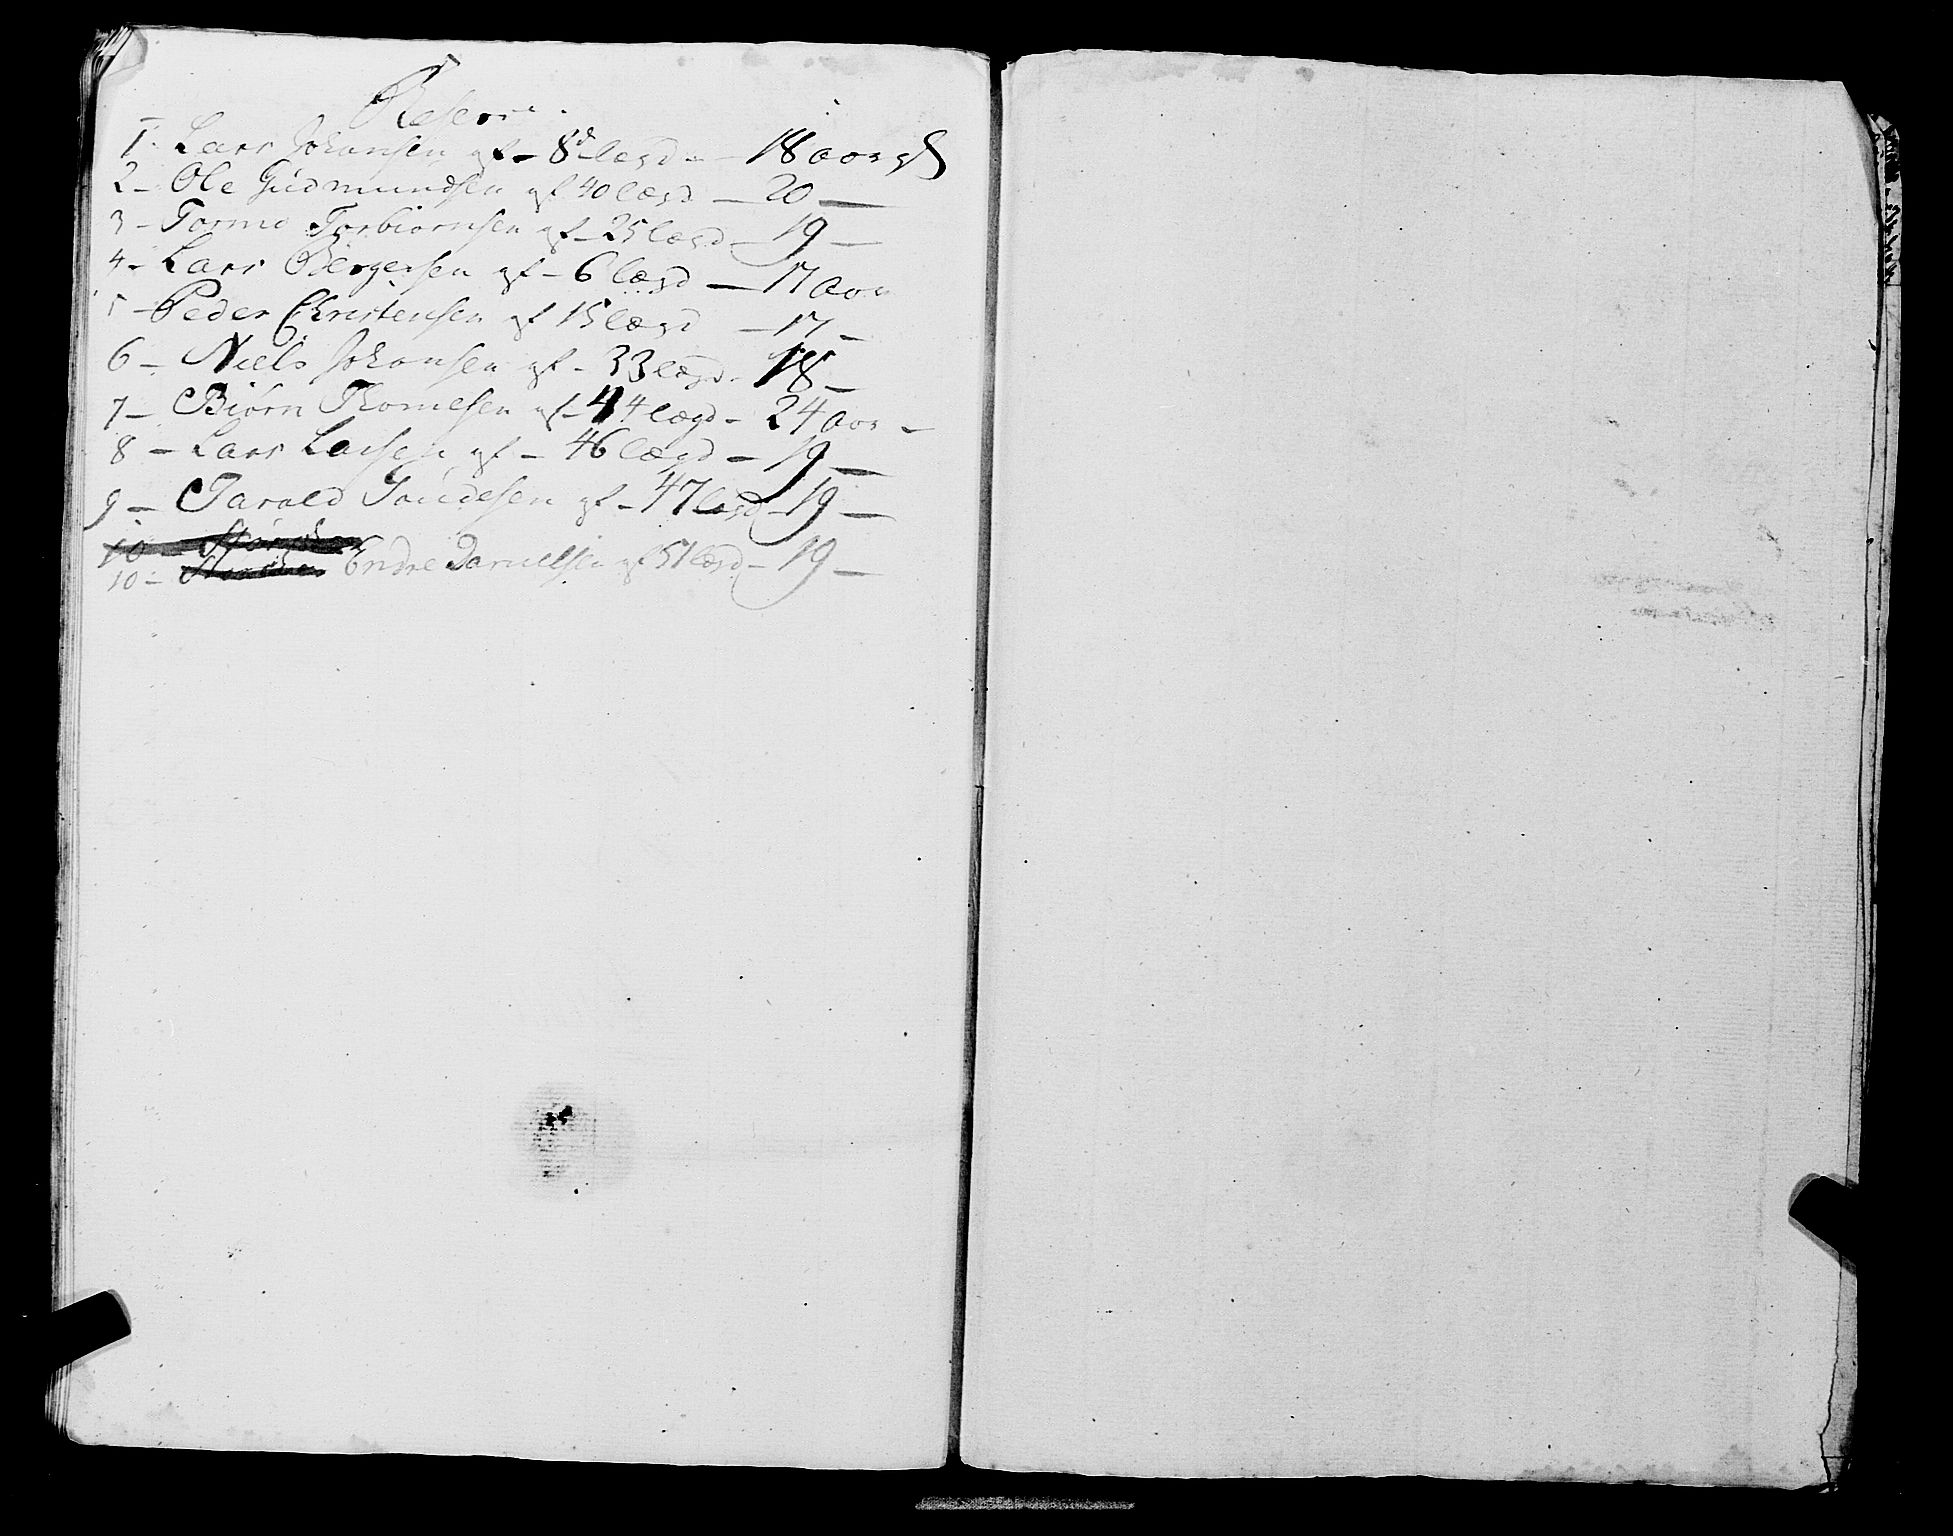 Reserve
1. Lars Johansen af - 8d lægd - 18 aar gl
2 - Ole Gudmundsen af 40 lægd - 20 -
3 - Tormo Torbiørnsen af - 25 lægd - 19 -
4 - Lars Bergersen af - 6 lægd - 17 aar
5 - Peder Christensen af 15 lægd - 17 -
6 - Niels Johansen af - 33 lægd - 18 -
7 - Biørn Thomesen af - 44 lægd - 24 aar -
8 - Lars Larsen af - 46 lægd - 19 -
9 - Tarald af - 47 lægd - 19 -
10 -
10 - Endre Danielsen af 51 lægd - 19 -